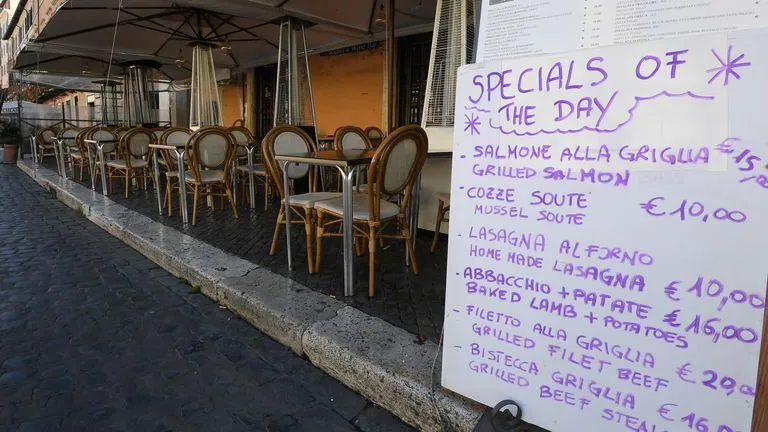 SPECIALS OF
THE DAY
- SALMONE ALLA GRIGLIA €15,
GRILLED SALMON
- COZZE SOUTE €10,00
MUSSEL SOUTE
- LASAGNA AL FORNO
HOME MADE LASAGNA €10,00
- ABBACCHIO + PATATE €16,00
BAKED LAMB + POTATOES
- FILETTO ALLA GRIGLIA
GRILLED FILET BEEF €20,00
- BISTECCA GRIGLIA €16,00
GRILLED BEEF